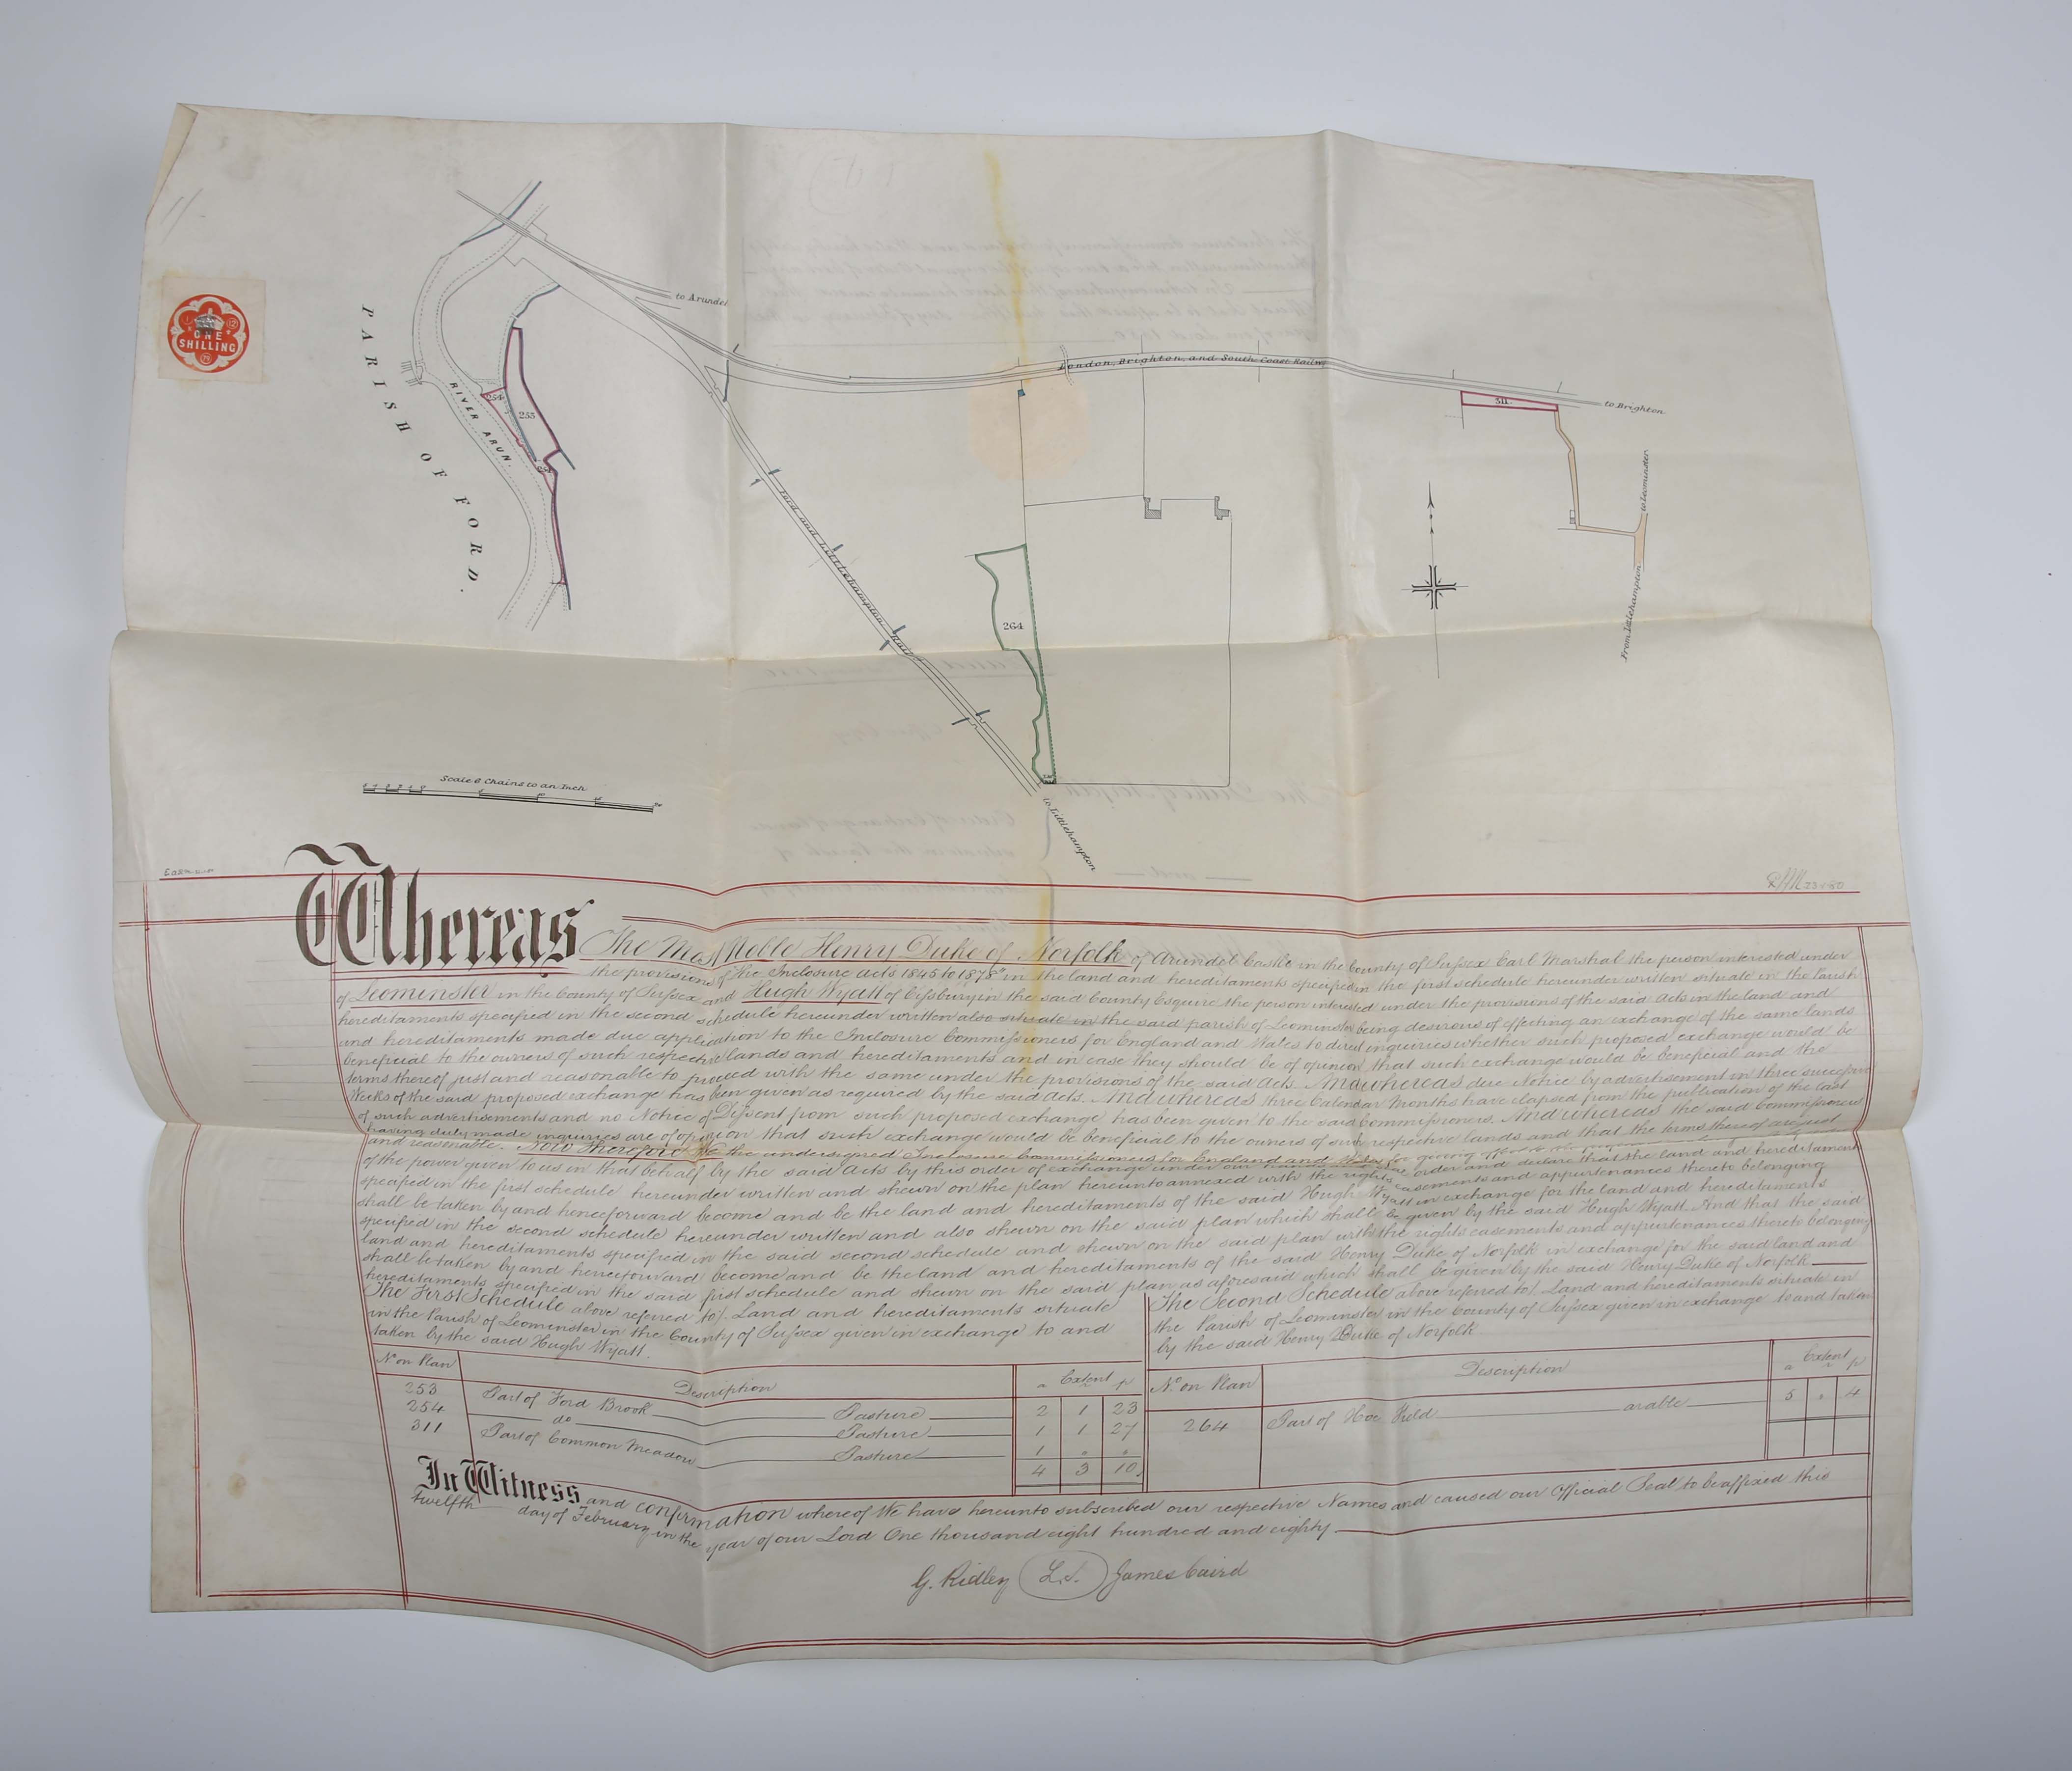 ONE
SHILLING
PARISH OF FORD.
RIVER ARUN.
254
253
254
to Arundel
London, Brighton, and South Coast Railway
311
to Brighton
to Leominster
From Littlehampton
Ford and Littlehampton Rail
264
to Littlehampton
Scale 6 Chains to an Inch
Whereas The Most Noble Henry Duke of Norfolk of Arundel Castle in the County of Sussex Earl Marshal the person interested under
the provisions of "The Inclosure Acts 1845 to 1878" in the land and hereditaments specified in the first schedule hereunder written situate in the Parish
of Leominster in the County of Sussex and Hugh Wyatt of Cissbury in the said County Esquire the person interested under the provisions of the said Acts in the land and
hereditaments specified in the second schedule hereunder written also situate in the said parish of Leominster being desirous of effecting an exchange of the same lands
and hereditaments made due application to the Inclosure Commissioners for England and Wales to direct inquiries whether such proposed exchange would be
beneficial to the owners of such respective lands and hereditaments and in case they should be of opinion that such exchange would be beneficial and the
terms thereof just and reasonable to proceed with the same under the provisions of the said Acts. And whereas due Notice by advertisement in three successive
Weeks of the said proposed exchange has been given as required by the said Acts. And whereas three Calendar Months have elapsed from the publication of the last
of such advertisements and no Notice of Dissent from such proposed exchange has been given to the said Commissioners. And whereas the said Commissioners
having duly made inquiries are of opinion that such exchange would be beneficial to the owners of such respective lands and that the terms thereof are just
and reasonable. Now Therefore We the undersigned Inclosure Commissioners for England and Wales
of the power given to us in that behalf by the said Acts by this order of exchange under our order and declare that the land and hereditaments
specified in the first schedule hereunder written and shewn on the plan hereunto annexed with the rights easements and appurtenances thereto belonging
shall be taken by and henceforward become and be the land and hereditaments of the said Hugh Wyatt in exchange for the land and hereditaments
specified in the second schedule hereunder written and also shewn on the said plan which shall be given by the said Hugh Wyatt. And that the said
land and hereditaments specified in the said second schedule and shewn on the said plan with the rights easements and appurtenances thereto belonging
shall be taken by and henceforward become and be the land and hereditaments of the said Henry Duke of Norfolk in exchange for the said land and
hereditaments specified in the said first schedule and shewn on the said plan as aforesaid which shall be given by the said Henry Duke of Norfolk
The First Schedule above referred to. Land and hereditaments situate
in the Parish of Leominster in the County of Sussex given in exchange to and
taken by the said Hugh Wyatt.
No on Plan Description Extent a r p
253 Part of Ford Brook Pasture 2 1 23
254 do Pasture 1 1 27
311 Part of Common Meadow Pasture 1 " "
4 3 10
The Second Schedule above referred to. Land and hereditaments situate in
the Parish of Leominster in the County of Sussex given in exchange to and taken
by the said Henry Duke of Norfolk
No on Plan Description Extent a r p
264 Part of Hoe Field arable 5 " 4
In Witness and confirmation whereof We have hereunto subscribed our respective Names and caused our Official Seal to be affixed this
twelfth day of February in the year of our Lord One thousand eight hundred and eighty
G. Ridley L.S. James Caird